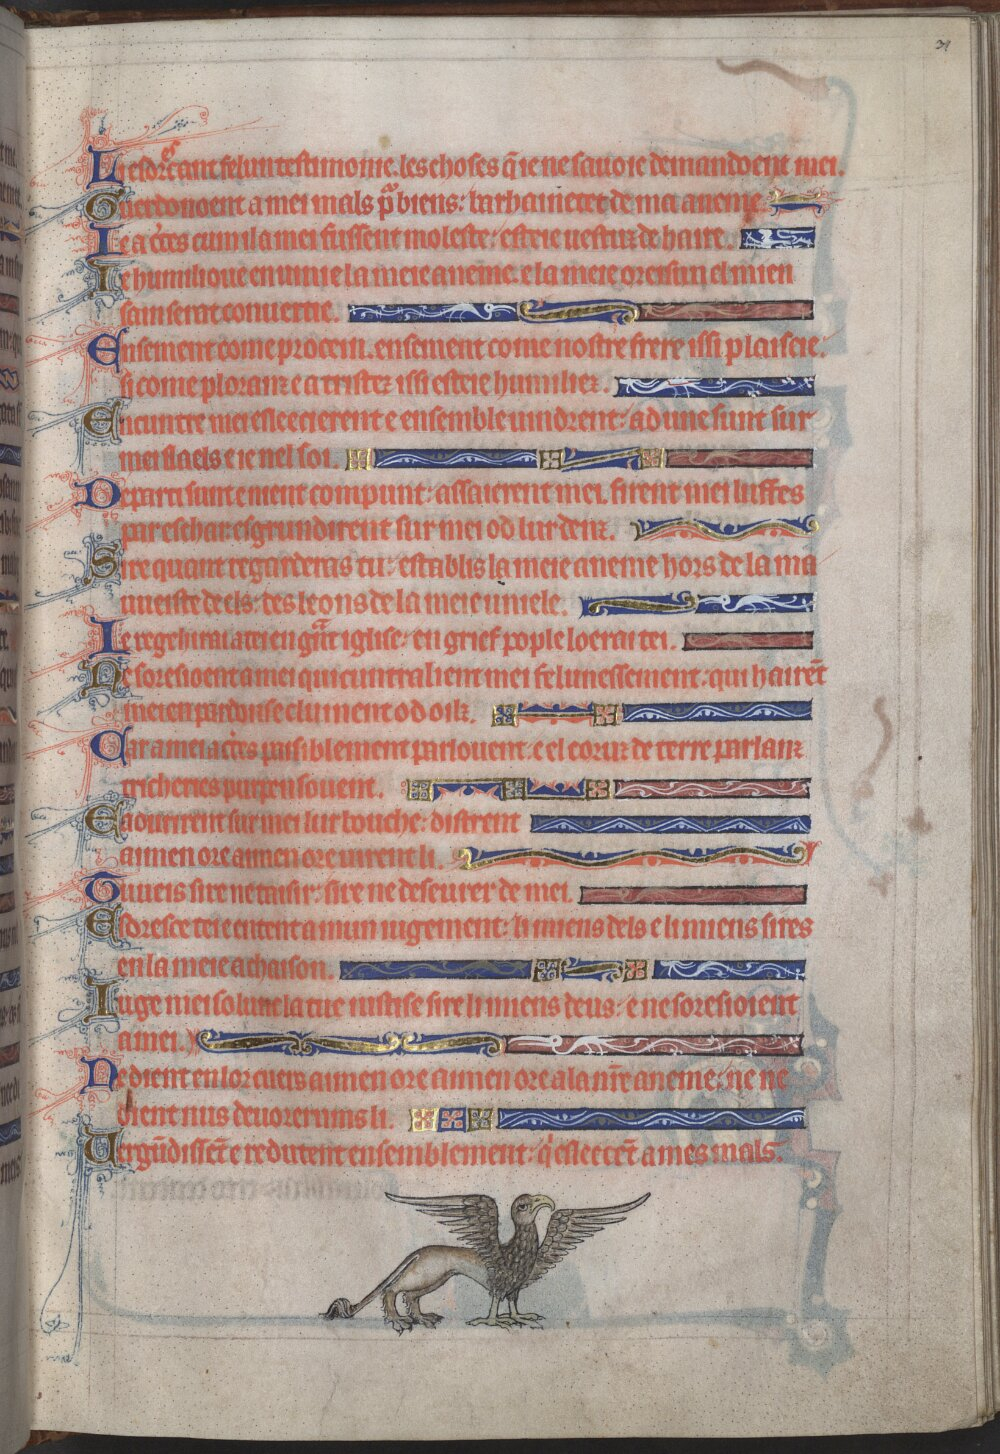 31
Liesdrecant felun testimonie. les choses q̄ ie ne sauoie demandoent mei.
Guerdonoent a mei mals p̃ biens: barhainetet de ma aneme.
Ie a c̃tes cum il a mei fussent moleste: esteie uestuz de haire.
Ie humilioue en iunie la meie aneme. e la meie oreisun el mien
sain serat conuertie.
Ensement come procein. ensement come nostre frere issi plaiseie:
si come ploranz e a tristez issi esteie humiliez.
Encuntre mei esleecierent e ensemble uindrent: adune sunt sur
mei flaels e ie nel soi.
Departi sunt e nient compunt: assaierent mei. firent mei buffes
par eschar. esgrundirent sur mei od lur denz.
Sire quant regarderas tu: establis la meie aneme hors de la ma
uueiste de els: des leons de la meie uniele.
Ie regehirai a tei en g̃nt iglise: en grief pople loerai tei.
Ne soresioent a mei qui cuntralient mei felunessement: qui hairēt
mei en pardun se cluinent od oilz.
Car a mei ac̃tes paisiblement parlouent: e el coruz de terre parlanz
tricheries purpensouent.
E aourirent sur mei lur bouche: distrent
aimen ore aimen ore uirent li.
Tu ueis sire ne taisir: sire ne deseurer de mei.
Esdresce tei e entent a mun iugement: li miens deus e li miens sires
en la meie achaison.
Iuge mei solunc la tue iustise sire li miens deus: e ne soresioient
a mei.
Ne dient en lor cuers aimen ore aimen ore a la nr̃e aneme: ne ne
dient nus deuorerums li.
Uergūdissēt e redutent ensemblement: q' esleecēt a mes mals.